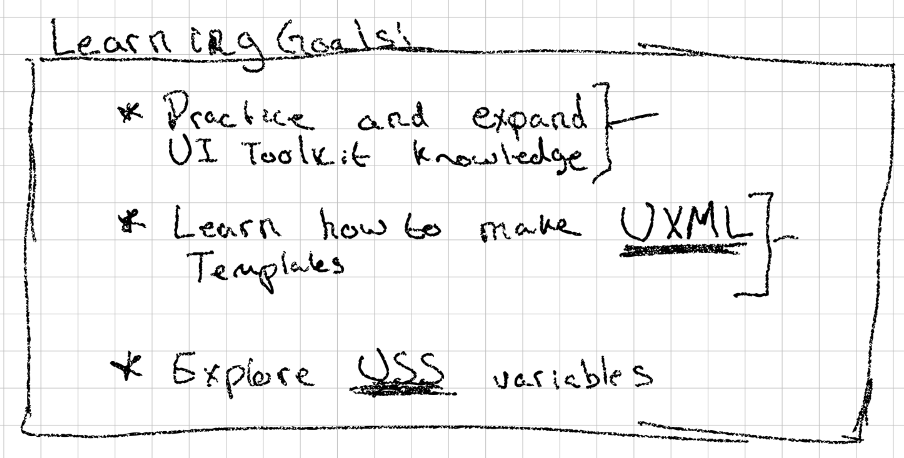 Learning Goals:
* Practice and expand
UI Toolkit knowledge
* Learn how to make UXML
Templates
* Explore USS variables